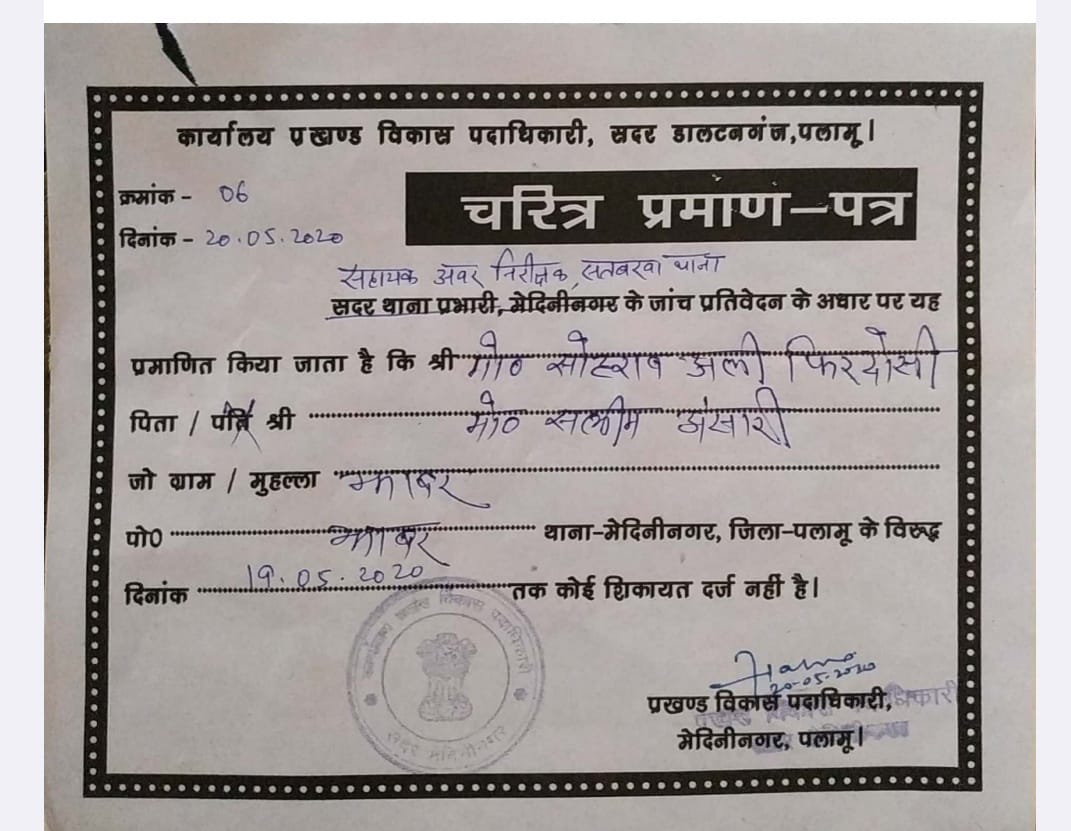 कार्यालय प्रखण्ड विकास पदाधिकारी, सदर डालटनगंज,पलामू।
क्रमांक - 06
चरित्र प्रमाण-पत्र
दिनांक - 20.05.2020
सहायक अवर निरीक्षक, सतबरवा थाना
सदर थाना प्रभारी, मेदिनीनगर के जांच प्रतिवेदन के अधार पर यह
प्रमाणित किया जाता है कि श्री मो० सोहराब अली फिरदोसी
पिता / पति श्री मो० सलीम अंसारी
जो ग्राम / मुहल्ला झाबर
पो0 झाबर थाना-मेदिनीनगर, जिला-पलामू के विरुद्ध
दिनांक 19.05.2020 तक कोई शिकायत दर्ज नहीं है।
प्रखंड विकास पदाधिकारी
सदर मेदिनीनगर
20-05-2020
प्रखण्ड विकास पदाधिकारी,
मेदिनीनगर, पलामू।